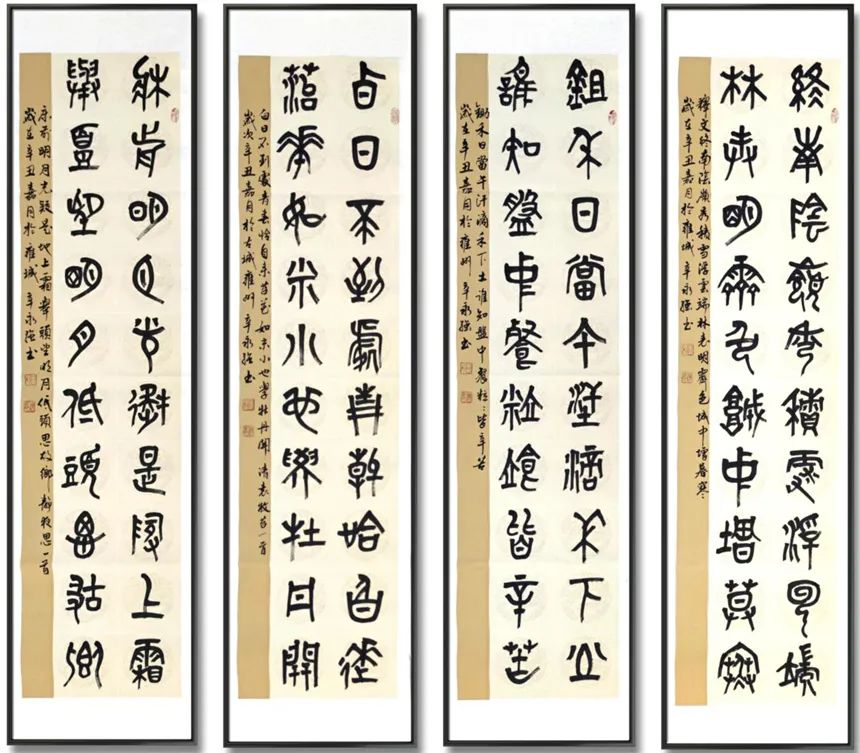 終南陰嶺秀積雪浮雲端
林表明霽色城中增暮寒
釋文終南陰嶺秀積雪浮雲端林表明霽色城中增暮寒
歲在辛丑嘉月於雍城 辛永強書
鉏禾日當午汗滴禾下土
誰知盤中餐粒粒皆辛苦
鋤禾日當午汗滴禾下土誰知盤中餐粒〻皆辛苦
歲在辛丑嘉月於雍州 辛永強書
白日不到處青春恰自來
苔花如米小也學牡丹開
白日不到處青春恰自來苔花如米小也學牡丹開 清袁枚苔一首
歲次辛丑嘉月於古城雍州 辛永強書
牀前明月光疑是地上霜
舉頭望明月低頭思故鄉
床前明月光疑是地上霜舉頭望明月低頭思故鄉 靜夜思一首
歲在辛丑嘉月於雍城 辛永強書